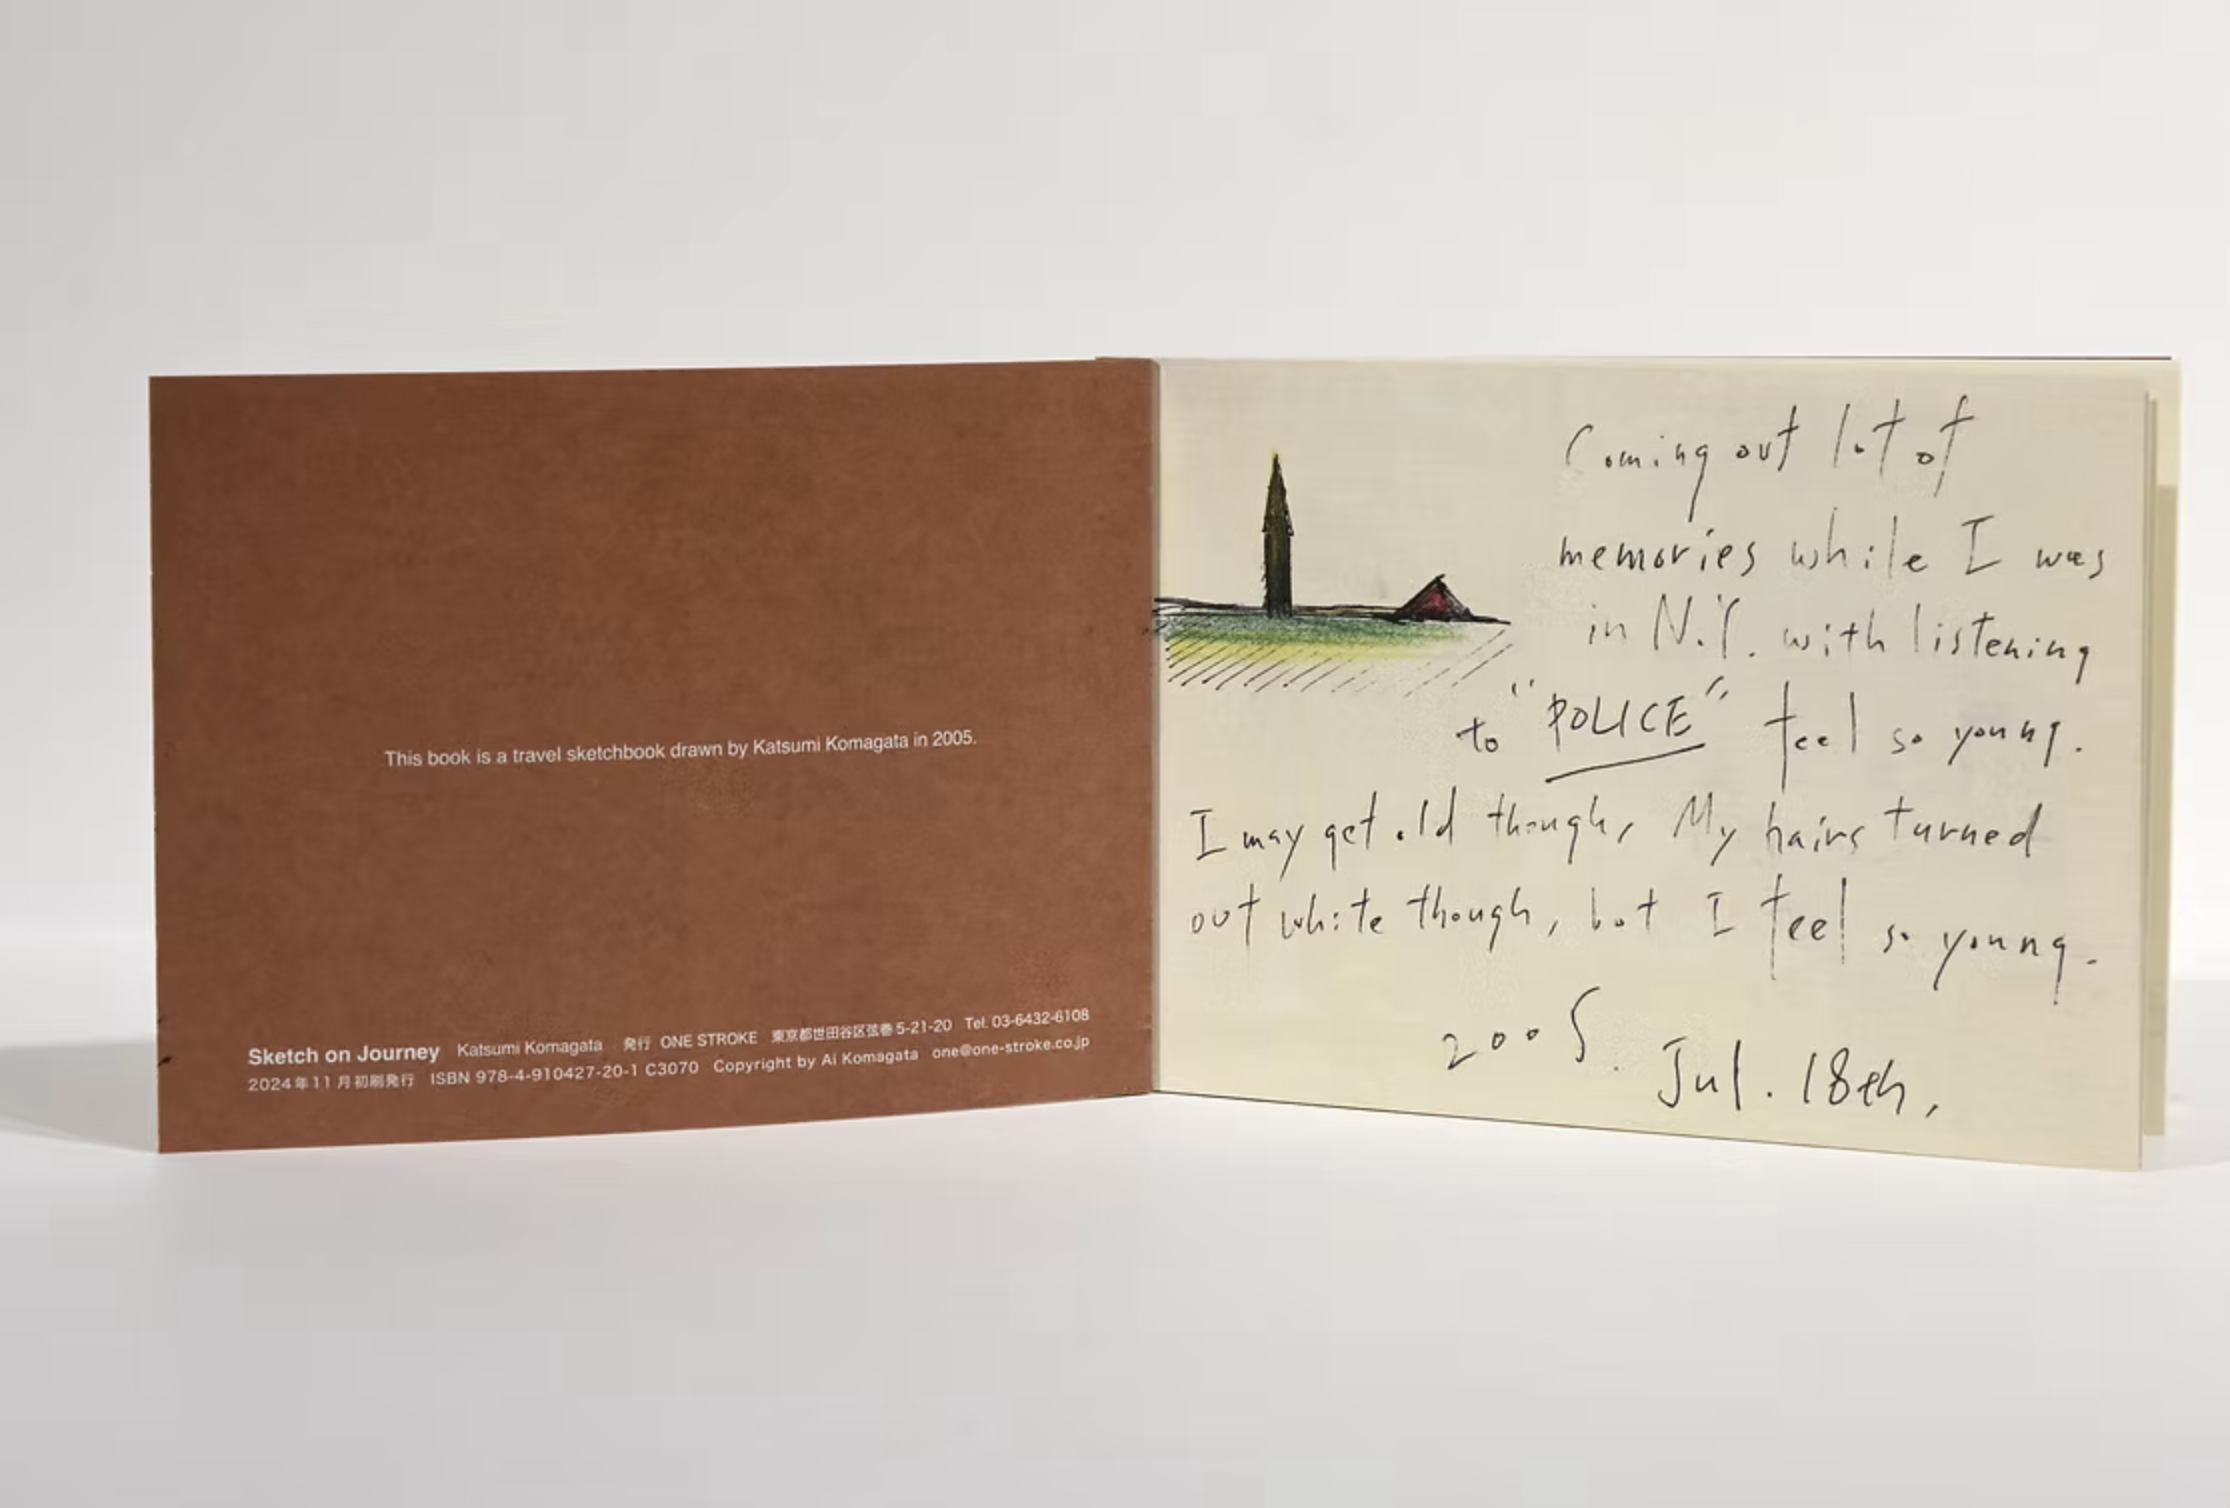 This book is a travel sketchbook drawn by Katsumi Komagata in 2005.
Sketch on Journey Katsumi Komagata 発行 ONE STROKE 東京都世田谷区弦巻 5-21-20 Tel. 03-6432-6108
2024年11月初刷発行 ISBN 978-4-910427-20-1 C3070 Copyright by Ai Komagata one@one-stroke.co.jp
Coming out lot of
memories while I was
in N.Y. with listening
to "POLICE" feel so young.
I may get old though, My hairs turned
out white though, but I feel so young.
2005. Jul. 18th,